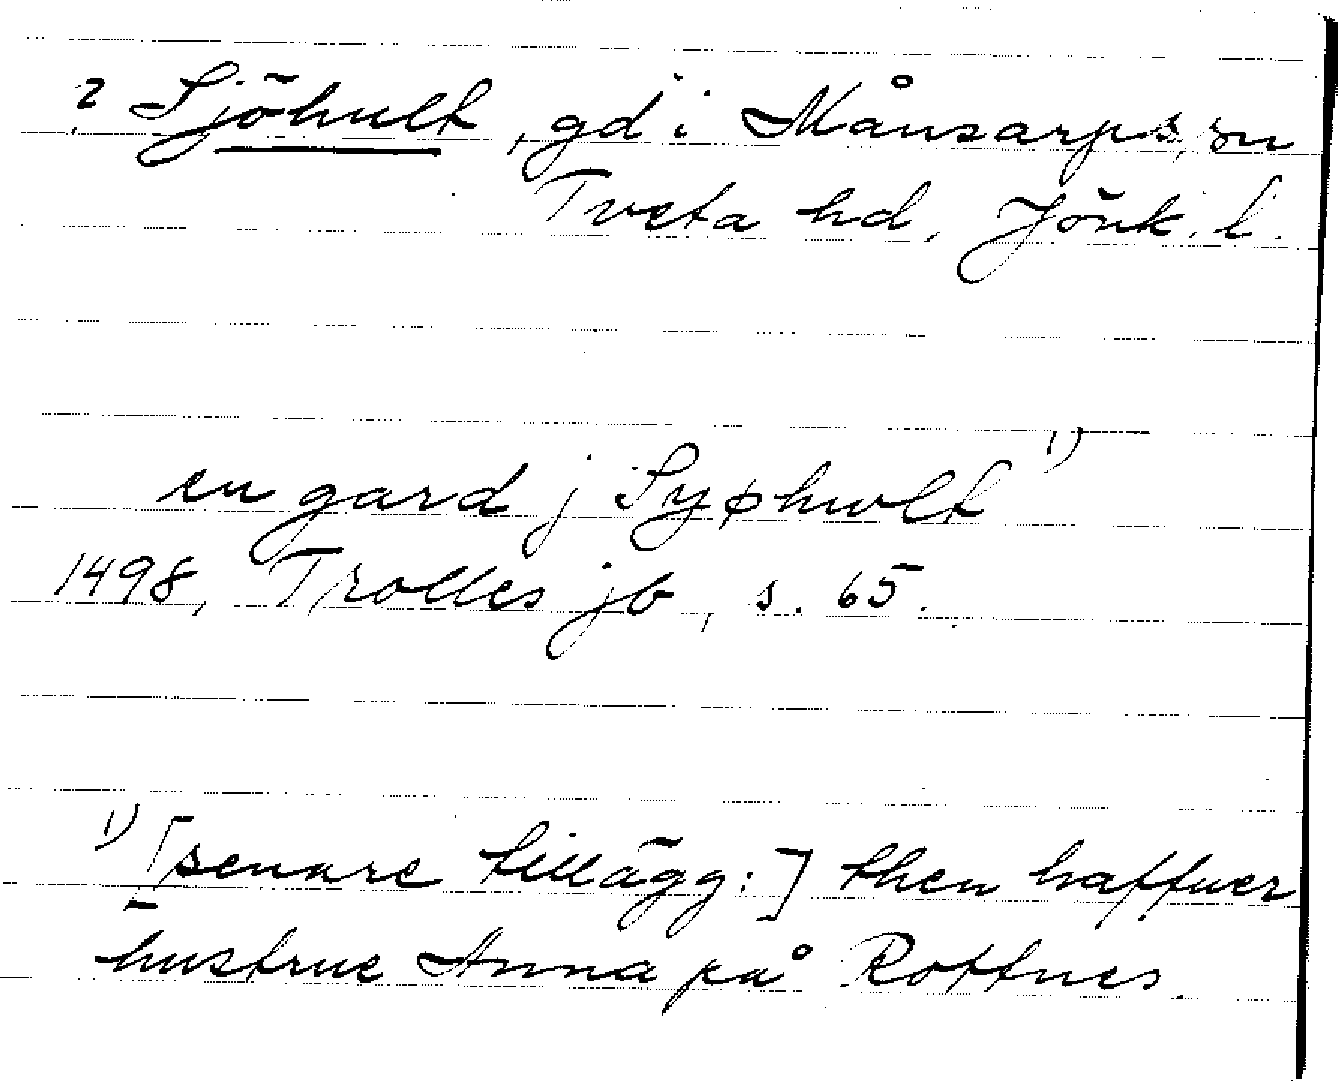 ? Sjöhult, gd i Månsarps sn
Tveta hd, Jönk. l.
en gard j Syøhwlt 1)
1498, Trolles jb, s. 65.
1) [senare tillägg:] then haffuer
hustrue Anna på Rottnes.